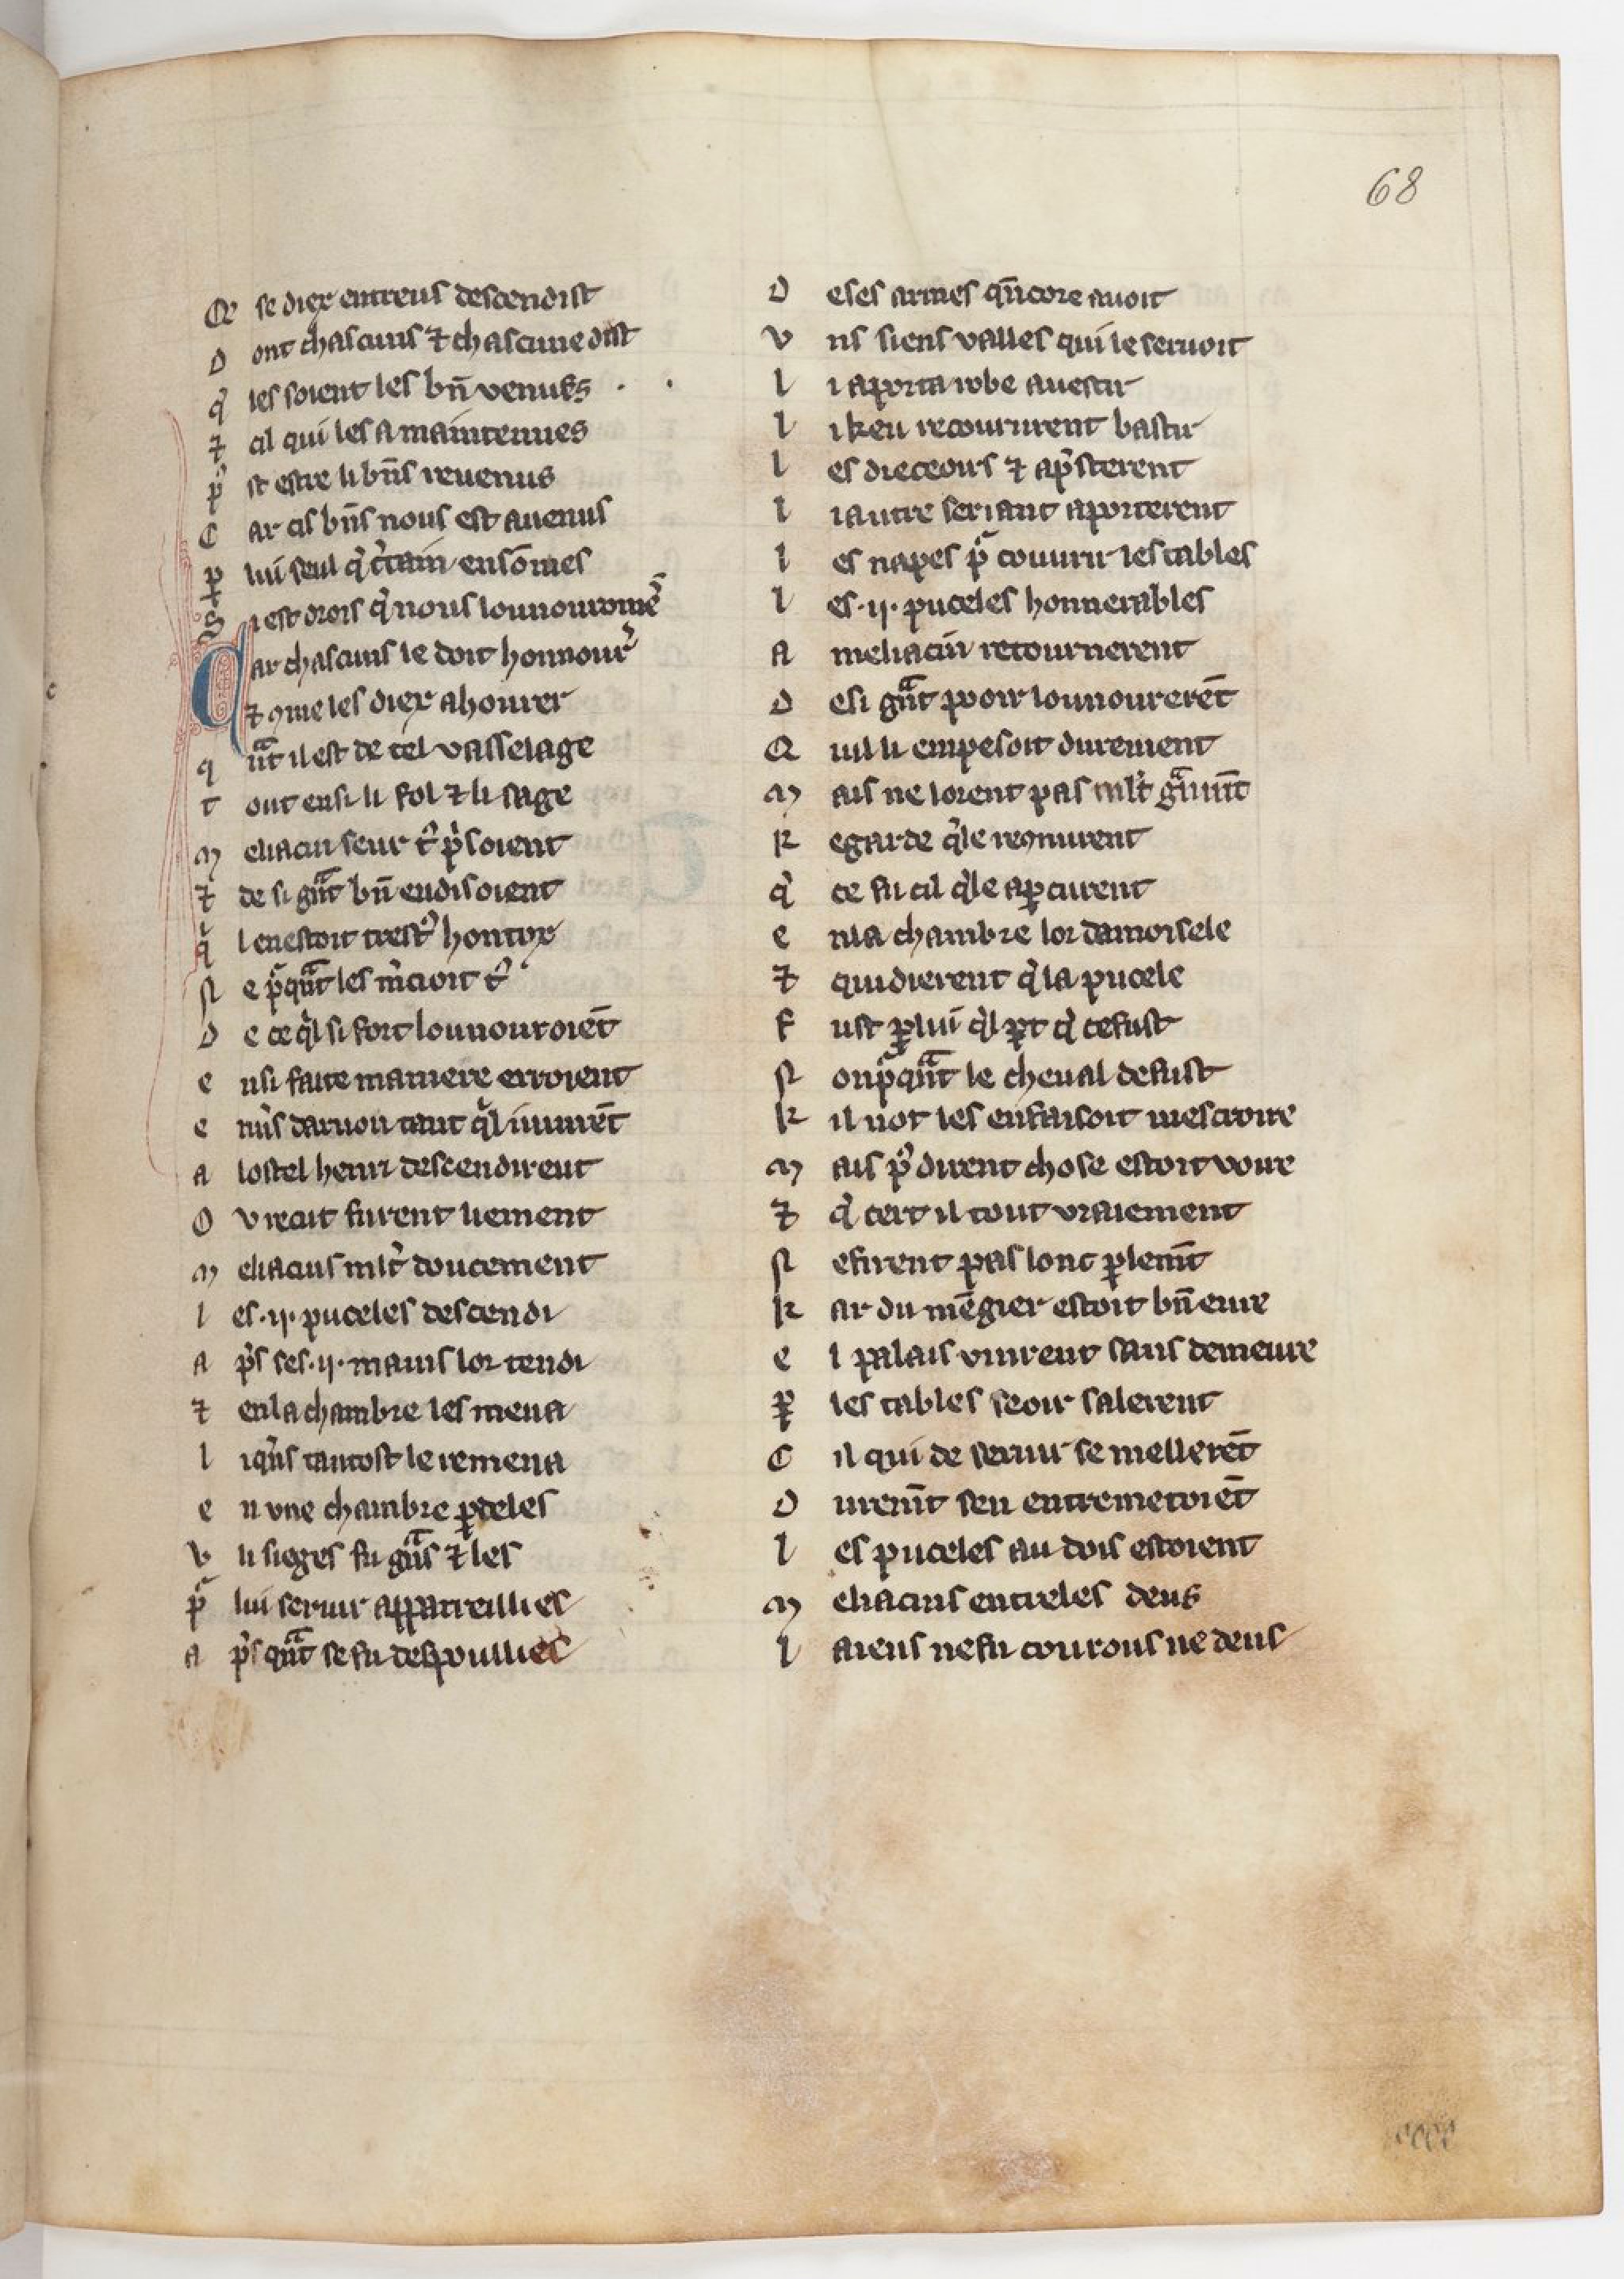 68
Q̄ se diex entreus descendist
D ont chascuns ⁊ chascune dist
q̓ les soient les bn̄ venues
⁊ cil qui les a maintenues
pᷣ st estre li bn̄s reuenus
C ar cis bn̄s nous est auenus
ꝑ lui seul q̓ c̓tain en sōmes
S i est drois q̓ nous lounouromē
Car chascuns le doit honnour̓
⁊ ꝯme les diex ahourer
q ᷓnt il est de tel vasselage
t out ensi li fol ⁊ li sage
M eliacin seur tᷣ p̓soient
⁊ de si gᷓnt bn̄ en disoient
q̓ l en estoit trestᷣ hontox
N e pᷣqᷓnt les m̓cioit tᷣ
D e ce q̓l si fort lounouroiēt
e nsi faite maniere erroient
e nu̓s daruon tant q̓l i uinrēt
a lostel henri descendirent
O v recut furent liement
M eliacins mlt̓ doucement
l es .ij. puceles descendi
a p̓s ses .ij. mains lor tendi
⁊ en la chambre les mena
l i q̓ns tantost le remena
e n vne chambre ꝑ deles
V li sieges fu gᷓns ⁊ les
pᷣ lui seruir apparreillies
a p̓s qᷓnt se fu despoullies
D e ses armes qn̄core auoit
V ns siens valles qui le seruoit
l i aporta robe a uestir
l i keu recoururent hastir
l es dieceours ⁊ ap̓sterent
l i autre seriant aporterent
l es napes pᷣ couurir les tables
l es .ij. puceles honnerables
A meliacin retournerent
D e si gᷓnt pooir lounourerēt
Q uil li em pesoit durement
M ais ne lorent pas mlt̓ gᷓnmt̄
R egarde q̓ le reꝯnurent
q̓ ce fu cil q̓ le aꝑcurent
e n la chambre lor damoisele
⁊ quidierent q̓ la pucele
F ust ꝑ lui q̓l ꝑt q̓ ce fust
N on pᷣqᷓnt le cheual de fust
K il not les en faisoit mescroire
M ais pᷣ dirent chose estoit voire
⁊ q̓ cert il tout vraiement
N e firent pas lonc ꝑlemt̄
K ar du mēgier estoit bn̄ eure
e l palais vinrent sans demeure
ꝑ les tables seoir salerent
C il qui de seruir se mellerēt
D uremt̄ sen entremetoiēt
l es puceles au dois estoient
M eliacins entreles deus
l aiens ne fu courous ne deus